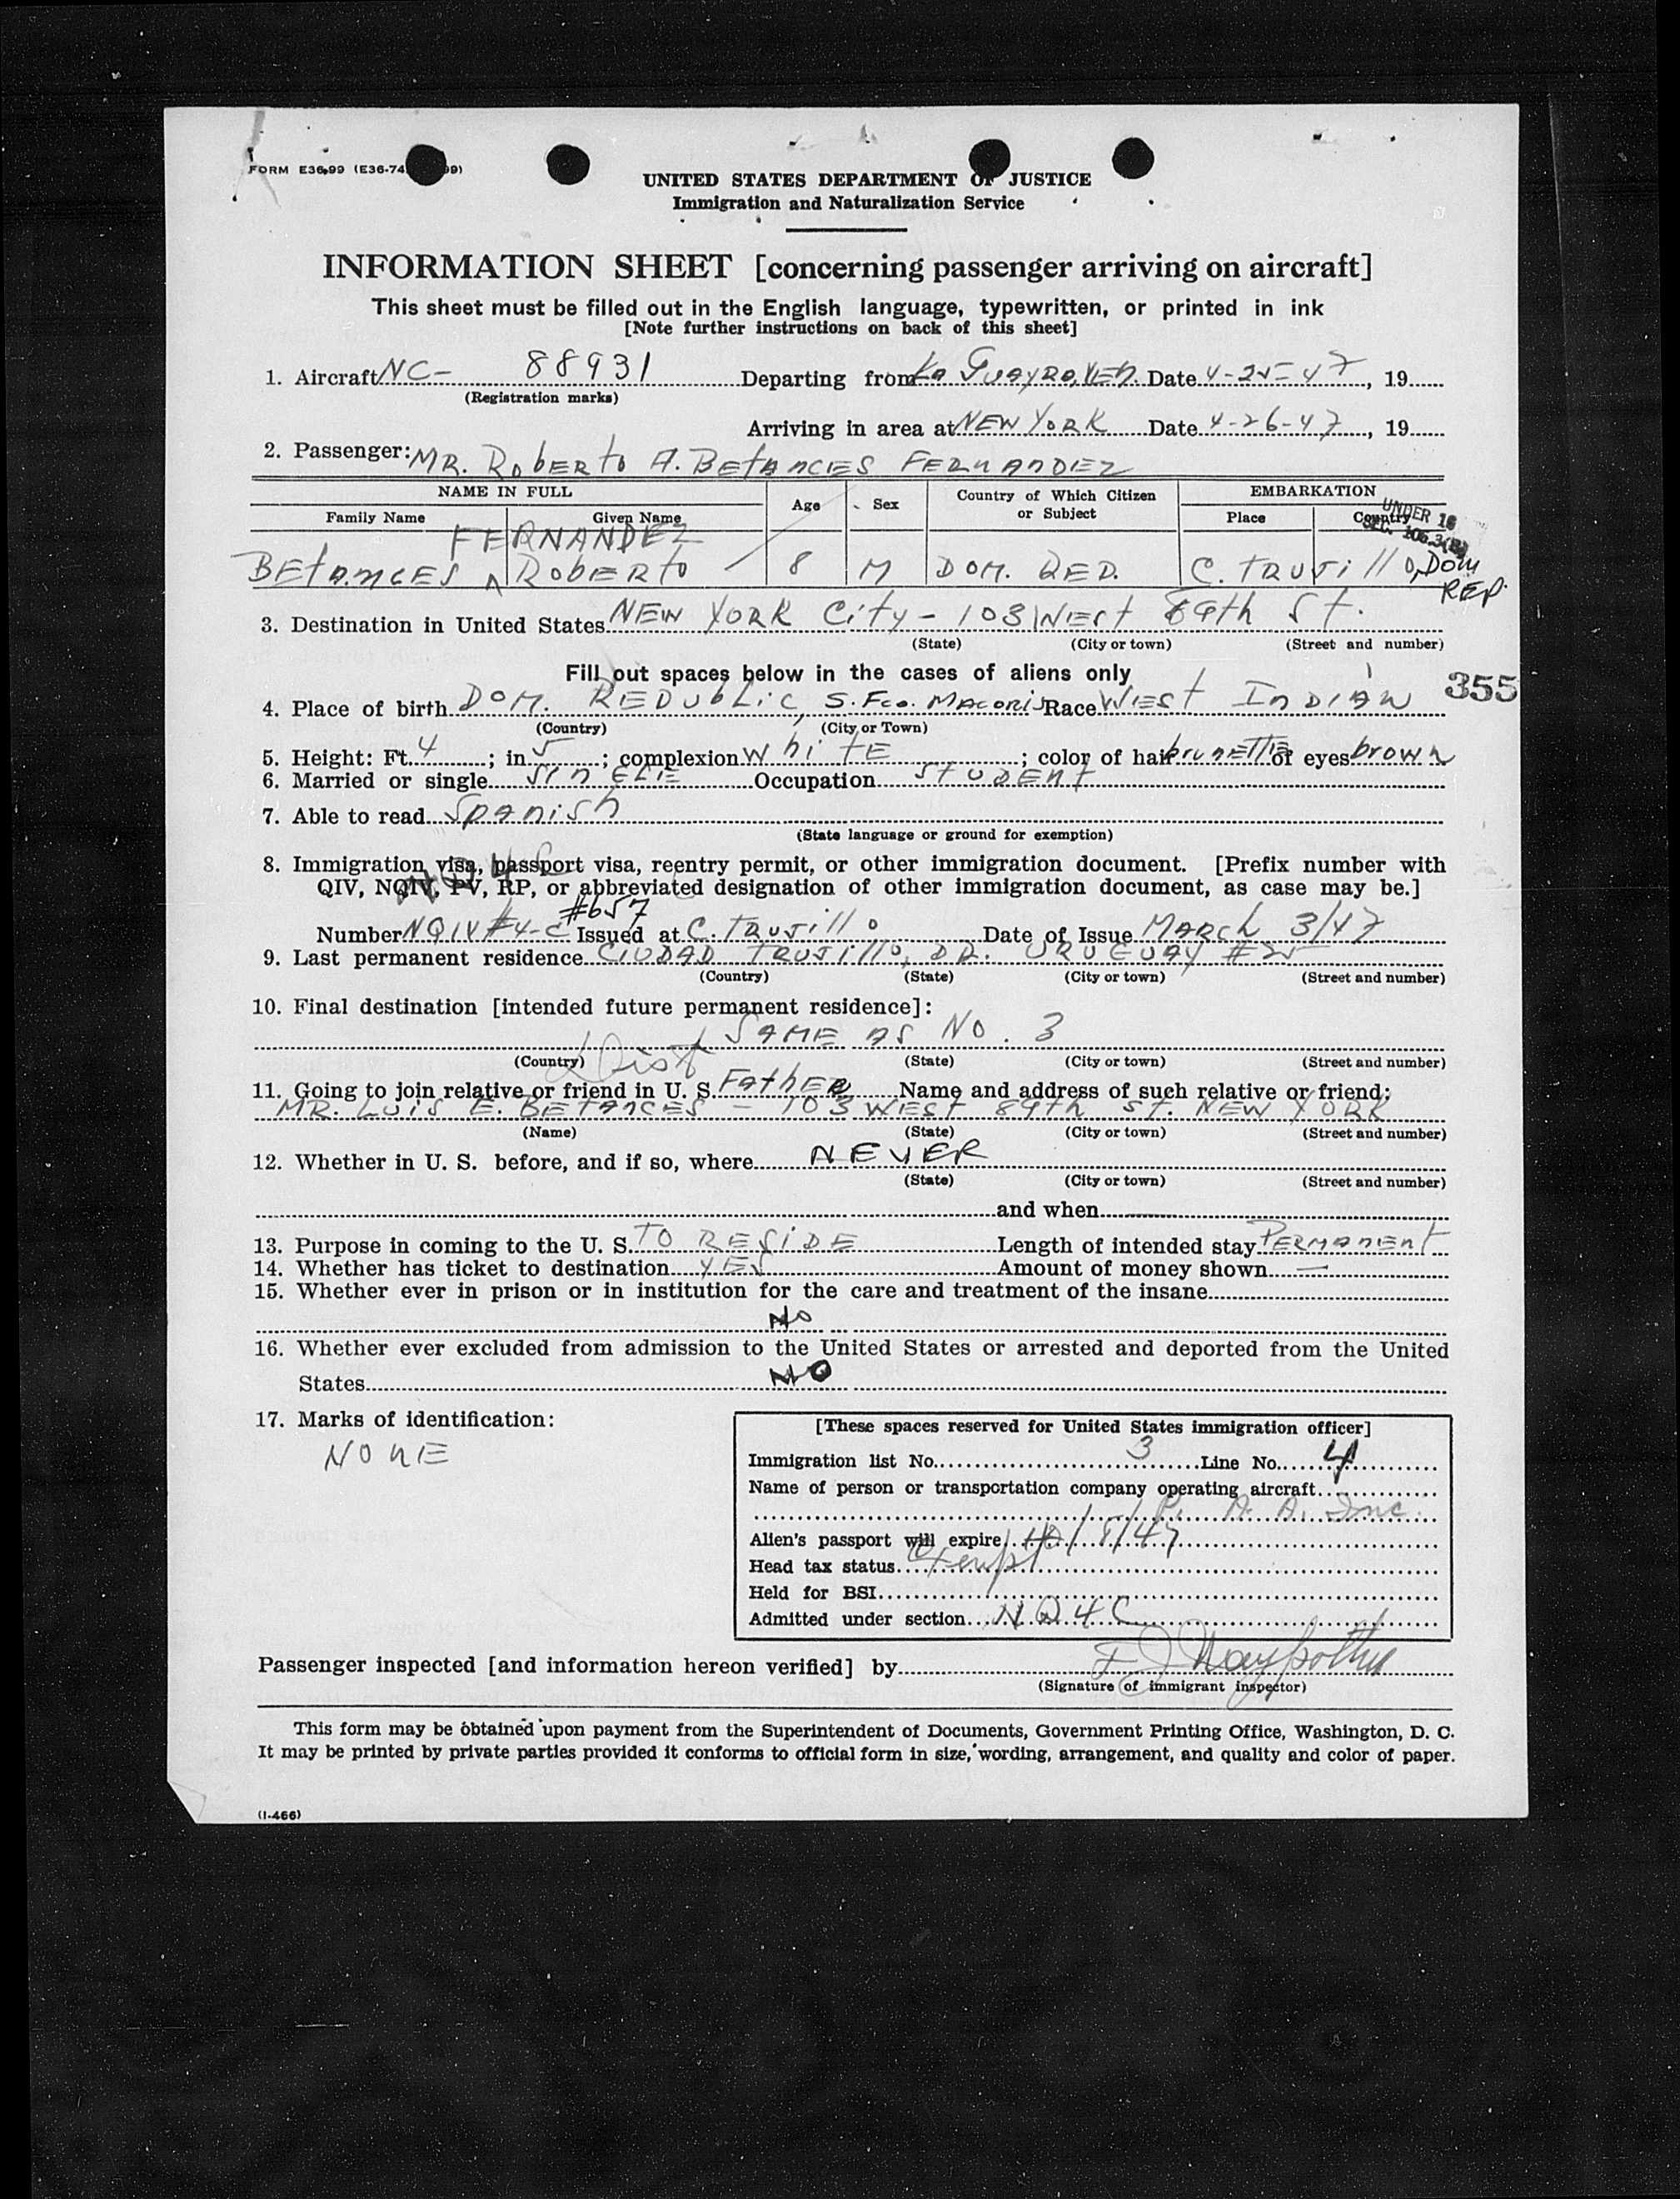 FORM E36-99 (E36-74
99)
UNITED STATES DEPARTMENT OF JUSTICE
Immigration and Naturalization Service
INFORMATION SHEET [concerning passenger arriving on aircraft]
This sheet must be filled out in the English language, typewritten, or printed in ink
[Note further instructions on back of this sheet]
1. Aircraft NC- 88931 Departing from La Guayra, Ven. Date 4-25-47, 19
(Registration marks)
Arriving in area at NEW YORK Date 4-26-47, 19
2. Passenger: MR. Roberto A. Betances FERNANDEZ
NAME IN FULL Age Sex Country of Which Citizen or Subject EMBARKATION
Family Name Given Name Place Country
UNDER 16
SEC. 106.3(B)
FERNANDEZ
Betances Roberto 8 M DOM. REP. C. TRUJillo, Dom
REP.
3. Destination in United States NEW YORK City - 103 West 89th St.
(State) (City or town) (Street and number)
Fill out spaces below in the cases of aliens only
355
4. Place of birth DOM. REPUBLIC, S. Fco. MACORIS Race WEST INDIAN
(Country) (City or Town)
5. Height: Ft. 4; in 5; complexion whitE; color of hair brunette of eyes brown
6. Married or single SINGLE Occupation STUDENT
7. Able to read Spanish
(State language or ground for exemption)
8. Immigration visa, passport visa, reentry permit, or other immigration document. [Prefix number with
QIV, NQIV, PV, RP, or abbreviated designation of other immigration document, as case may be.]
NQ4C
#657
Number NQIV #4-C Issued at C. TRUJillo Date of Issue MARCH 3/47
9. Last permanent residence CIUDAD TRUJillo, DR. URUGUAY #25
(Country) (State) (City or town) (Street and number)
10. Final destination [intended future permanent residece]:
SAME AS NO. 3
(Country) (State) (City or town) (Street and number)
11. Going to join relative or friend in U. S. FathER Name and address of such relative or friend:
MR. LUIS E. BETANCES - 103 WEST 89th ST. NEW YORK
(Name) (State) (City or town) (Street and number)
12. Whether in U. S. before, and if so, where NEVER
(State) (City or town) (Street and number)
and when
13. Purpose in coming to the U. S. TO RESIDE Length of intended stay PERMANENT
14. Whether has ticket to destination YES Amount of money shown —
15. Whether ever in prison or in institution for the care and treatment of the insane
No
16. Whether ever excluded from admission to the United States or arrested and deported from the United
States NO
17. Marks of identification:
NONE
[These spaces reserved for United States immigration officer]
Immigration list No. 3 Line No. 4
Name of person or transportation company operating aircraft
P. A. A. Inc.
Alien's passport will expire
Head tax status Exempt
Held for BSI
Admitted under section NQ4C
Passenger inspected [and information hereon verified] by
(Signature of immigrant inspector)
This form may be obtained upon payment from the Superintendent of Documents, Government Printing Office, Washington, D. C.
It may be printed by private parties provided it conforms to official form in size, wording, arrangement, and quality and color of paper.
(I-466)